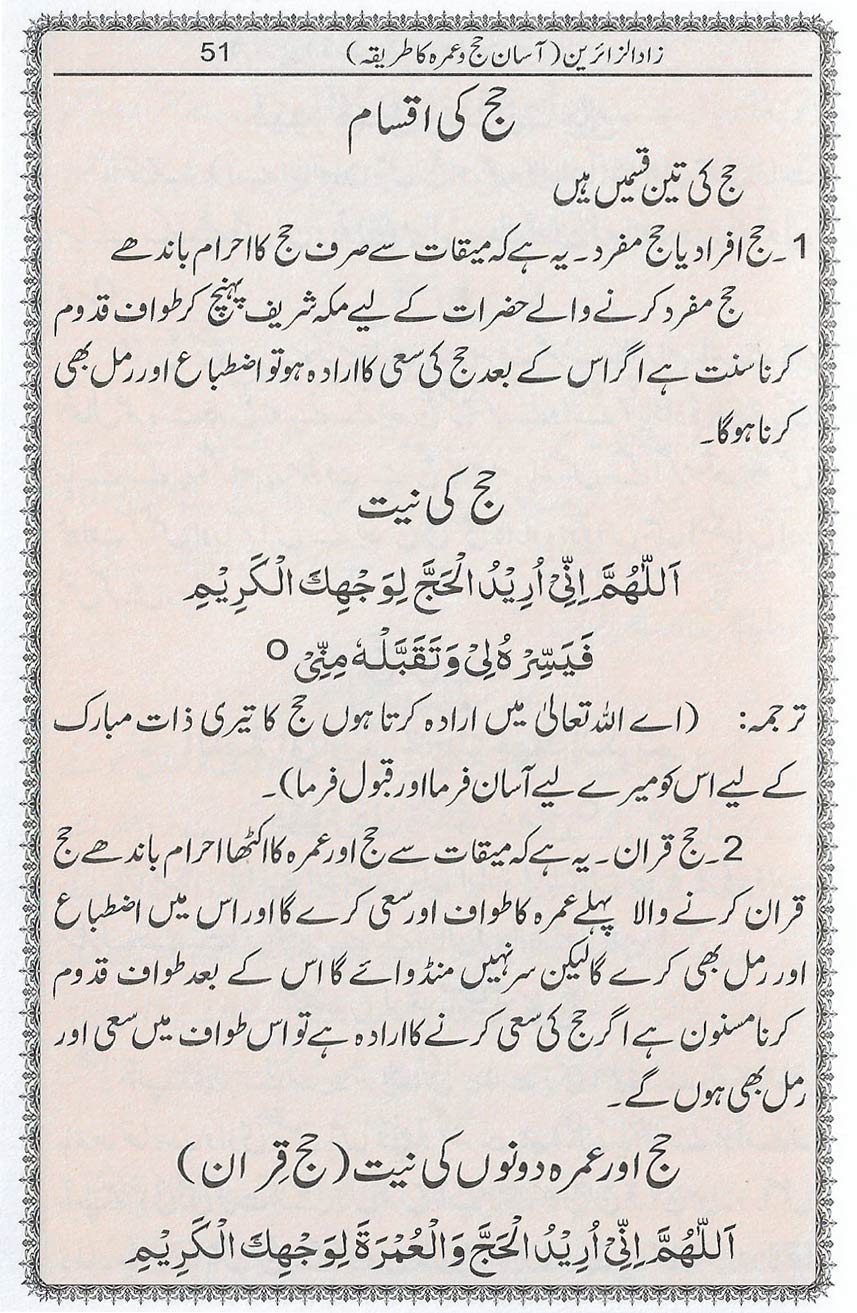 زاد الزائرین (آسان حج و عمرہ کا طریقہ) 51
حج کی اقسام
حج کی تین قسمیں ہیں
1۔ حج افراد یا حج مفرد۔ یہ ہے کہ میقات سے صرف حج کا احرام باندھے
حج مفرد کرنے والے حضرات کے لیے مکہ شریف پہنچ کر طواف قدوم
کرنا سنت ہے اگر اس کے بعد حج کی سعی کا ارادہ ہو تو اضطباع اور رمل بھی
کرنا ہوگا۔
حج کی نیت
اَللّٰهُمَّ اِنِّیْ اُرِیْدُ الْحَجَّ لِوَجْهِكَ الْكَرِیْمِ
فَیَسِّرْهُ لِیْ وَتَقَبَّلْهُ مِنِّیْ O
ترجمہ: (اے اللہ تعالیٰ میں ارادہ کرتا ہوں حج کا تیری ذات مبارک
کے لیے اس کو میرے لیے آسان فرما اور قبول فرما)۔
2۔ حج قران۔ یہ ہے کہ میقات سے حج اور عمرہ کا اکٹھا احرام باندھے حج
قران کرنے والا پہلے عمرہ کا طواف اور سعی کرے گا اور اس میں اضطباع
اور رمل بھی کرے گا لیکن سر نہیں منڈوائے گا اس کے بعد طواف قدوم
کرنا مسنون ہے اگر حج کی سعی کرنے کا ارادہ ہے تو اس طواف میں سعی اور
رمل بھی ہوں گے۔
حج اور عمرہ دونوں کی نیت (حج قِران)
اَللّٰهُمَّ اِنِّیْ اُرِیْدُ الْحَجَّ وَالْعُمْرَةَ لِوَجْهِكَ الْكَرِیْمِ